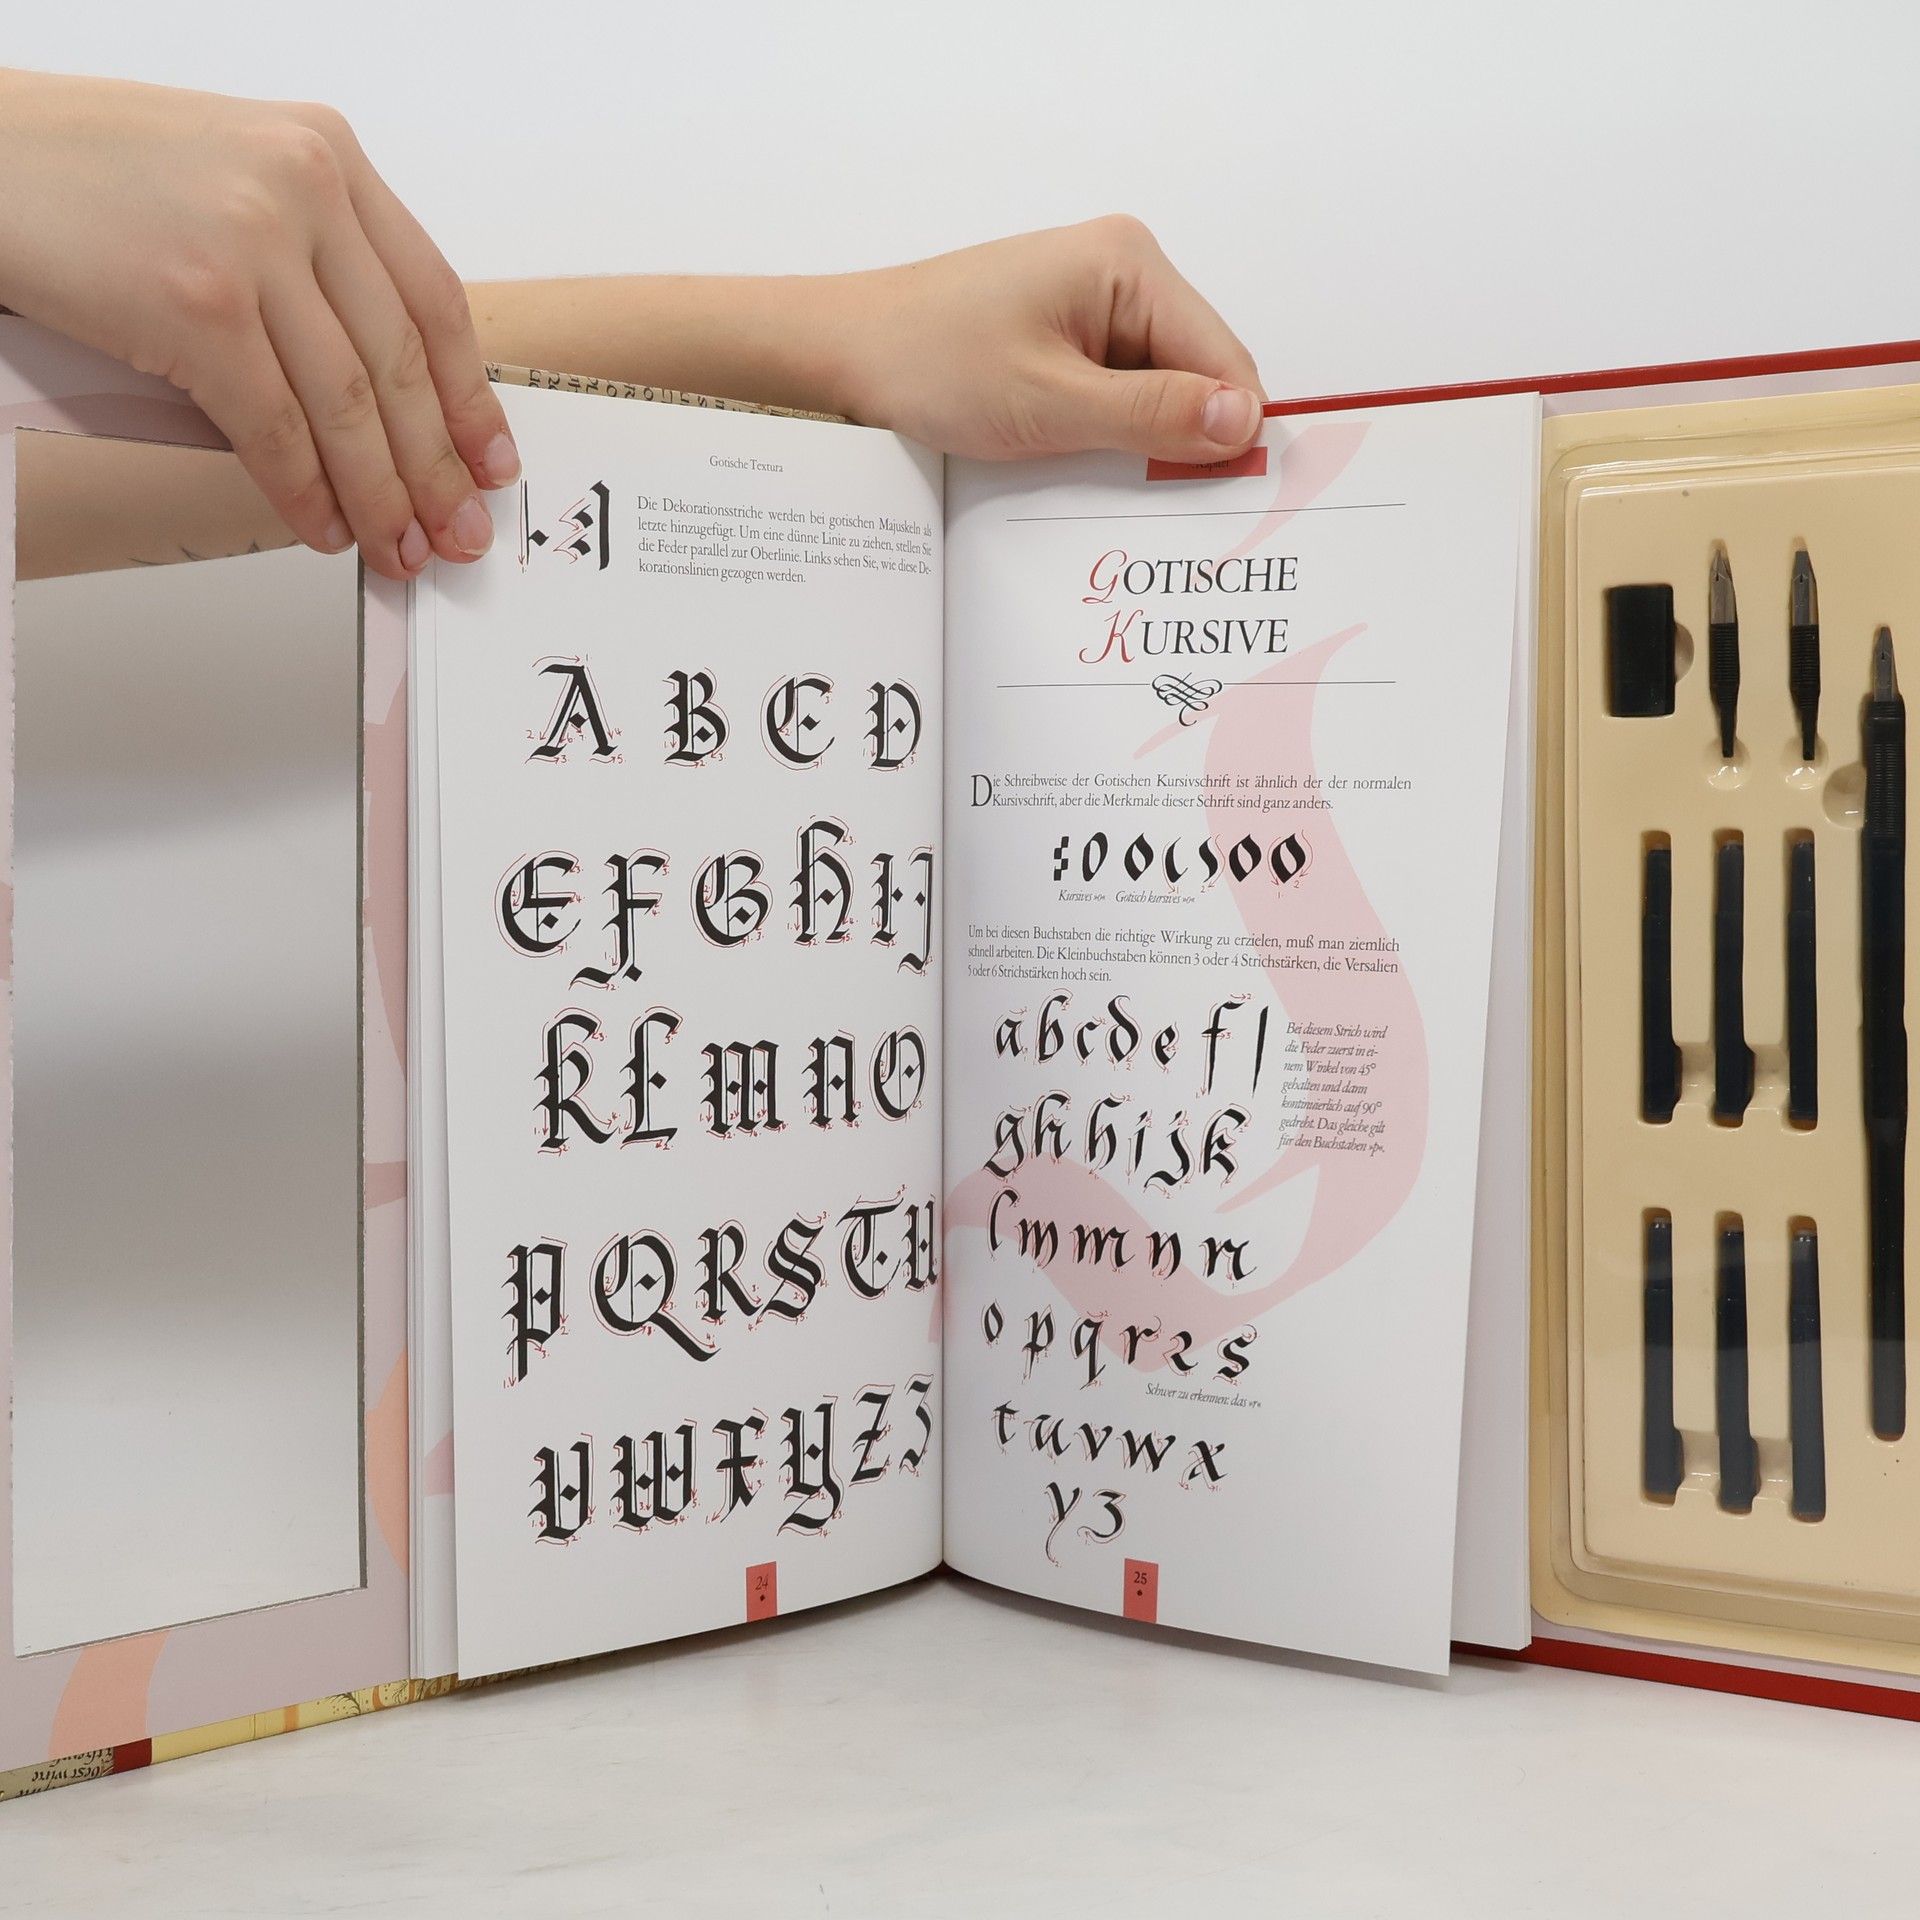 Gotische Textura
Die Dekorationsstriche werden bei gotischen Majuskeln als
letzte hinzugefügt. Um eine dünne Linie zu ziehen, stellen Sie
die Feder parallel zur Oberlinie. Links sehen Sie, wie diese De-
korationslinien gezogen werden.
A B C D
E F G H I J
K L M N O
P Q R S T U
V W X Y Z Z
24
Kapitel
GOTISCHE
KURSIVE
Die Schreibweise der Gotischen Kursivschrift ist ähnlich der der normalen
Kursivschrift, aber die Merkmale dieser Schrift sind ganz anders.
Kursives »o« Gotisch kursives »o«
Um bei diesen Buchstaben die richtige Wirkung zu erzielen, muß man ziemlich
schnell arbeiten. Die Kleinbuchstaben können 3 oder 4 Strichstärken, die Versalien
5 oder 6 Strichstärken hoch sein.
a b c d e f
g h h i j k
l m m n n
o p q r r s
t u v w x
y z
Bei diesem Strich wird
die Feder zuerst in ei-
nem Winkel von 45°
gehalten und dann
kontinuierlich auf 90°
gedreht. Das gleiche gilt
für den Buchstaben »p«.
Schwer zu erkennen: das »r«
25
best wine